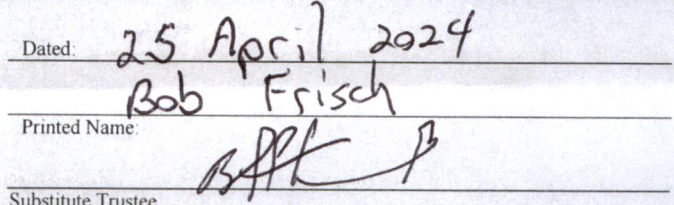 Dated: 25 April 2024
Bob Frisch
Printed Name:
Substitute Trustee